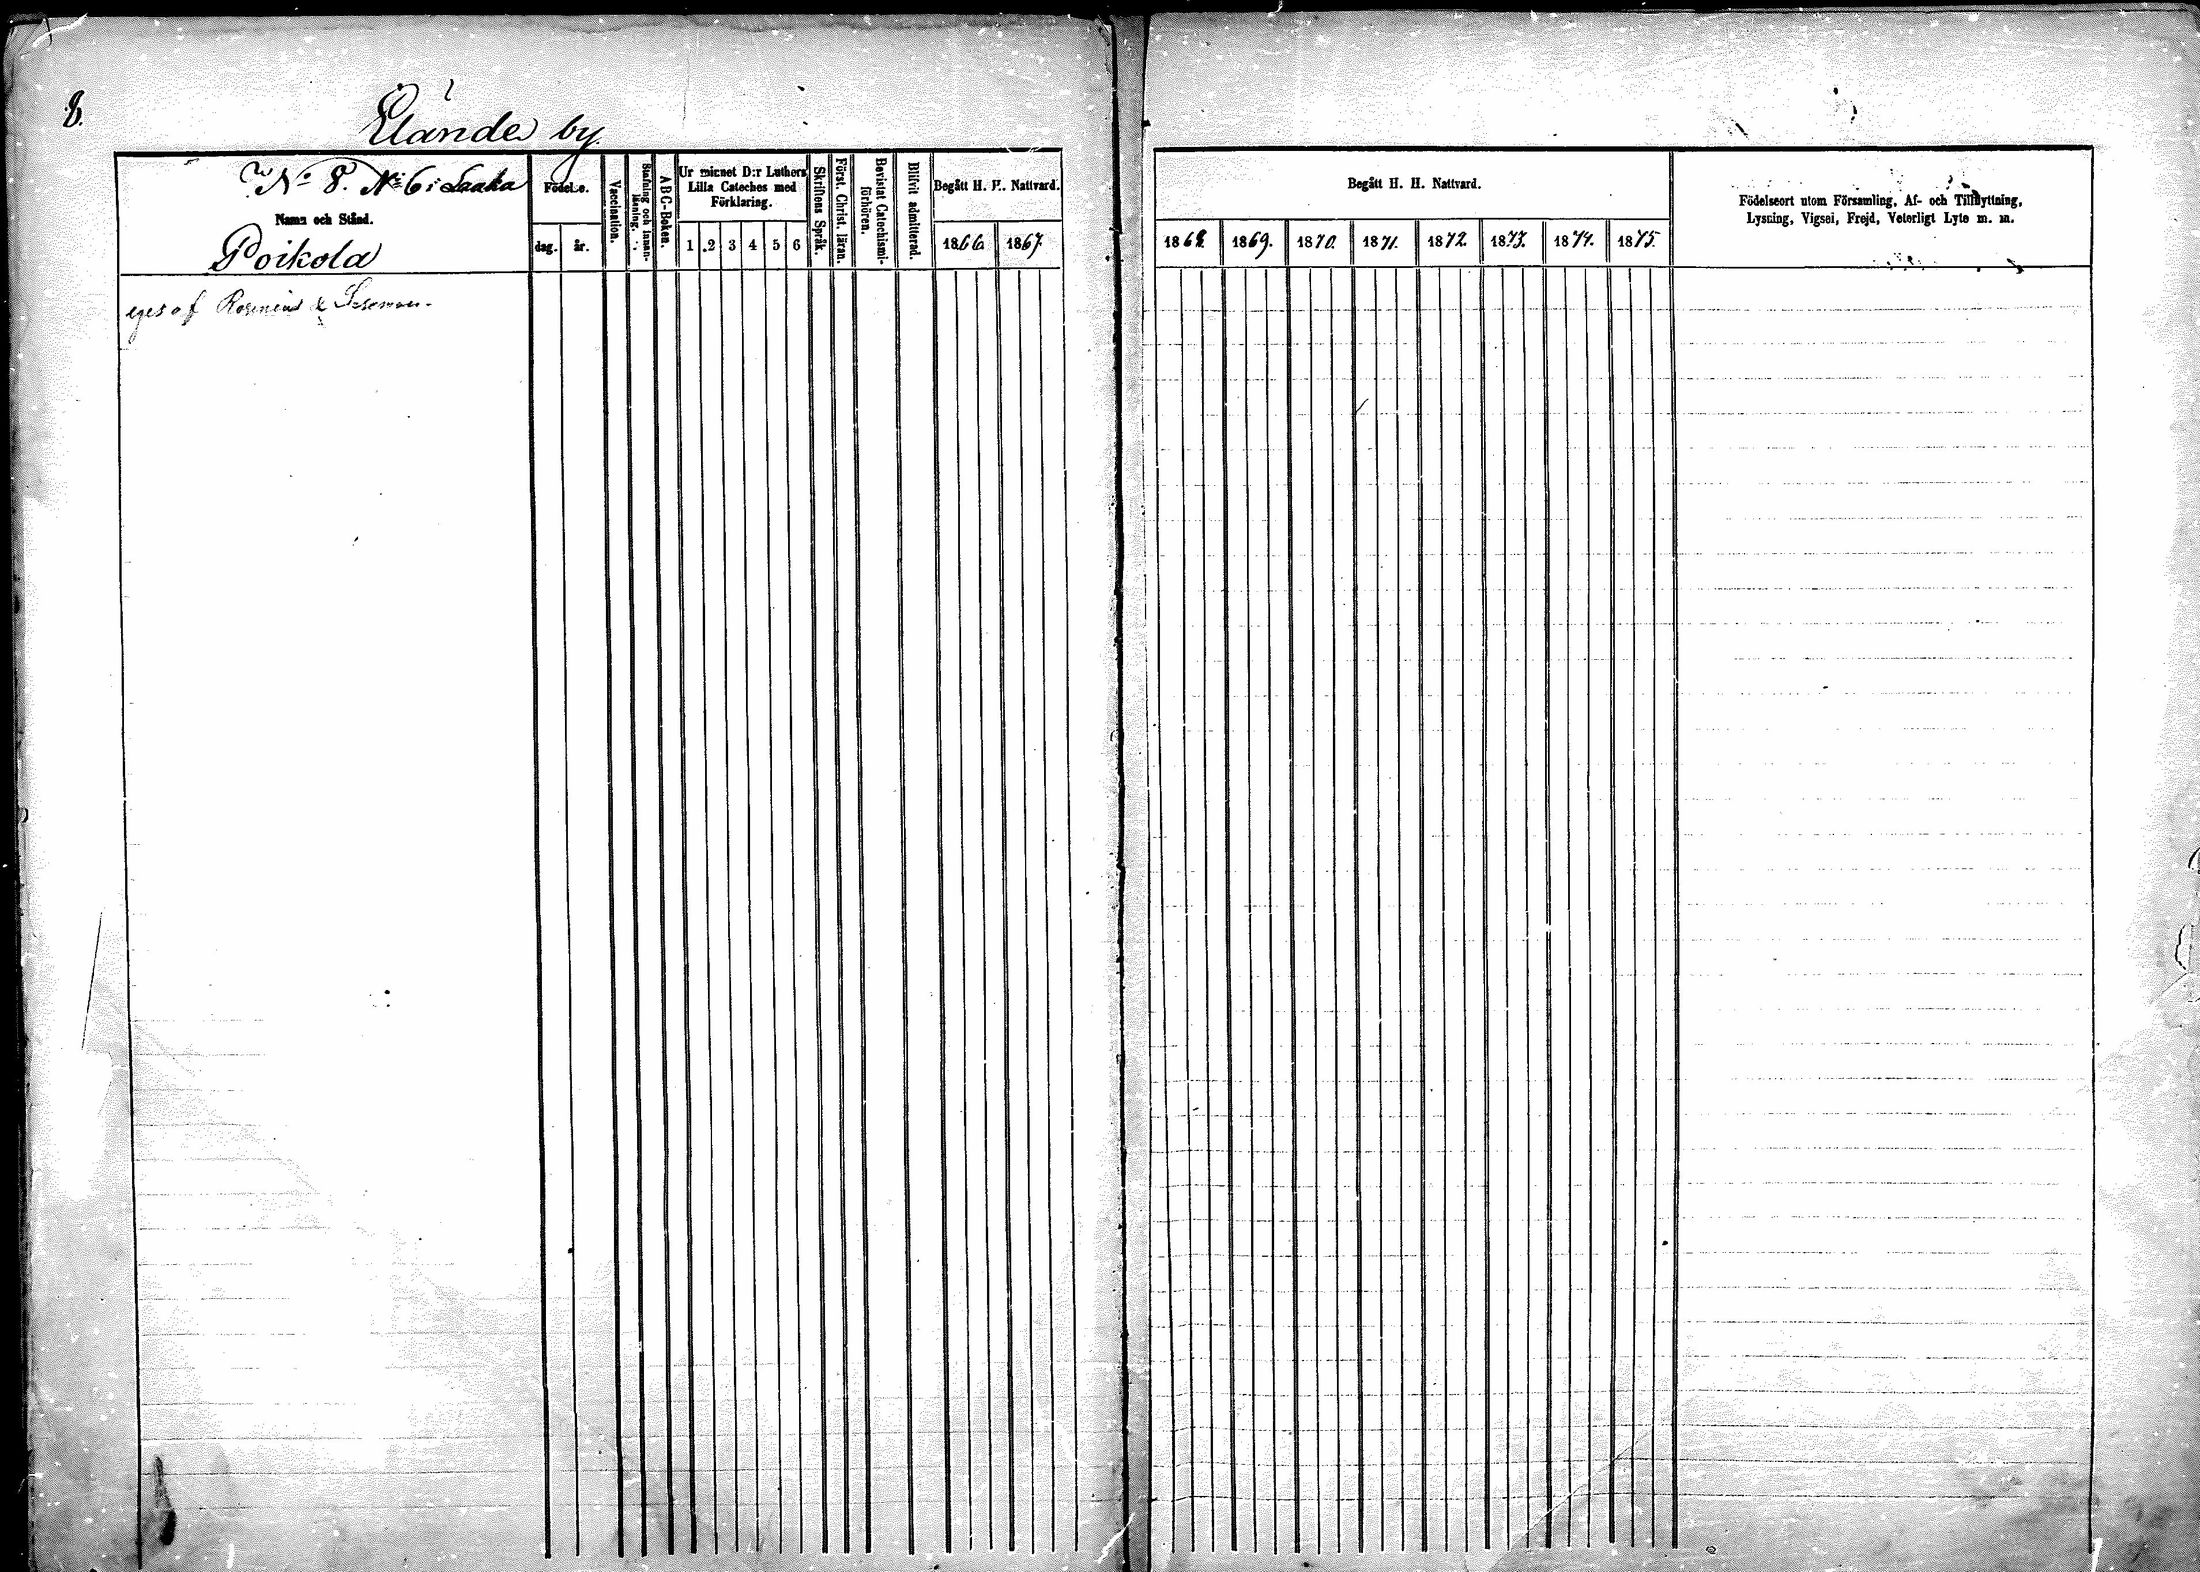 8.
Elände by.
No 8. No 6 i Laaka
Namn och Stånd.
Poikola
Födelse.
dag. år.
Vaccination.
Stafning och innan-
läsning.
ABC-Boken.
Ur minnet D:r Luthers
Lilla Cateches med
Förklaring.
1 2 3 4 5 6
Skriftens Språk.
Först. Christ. lären.
Bevistat Catechismi-
förhören.
Blifvit admitterad.
Begått H. H. Nattvard.
1866. 1867.
Begått H. H. Nattvard.
1868. 1869. 1870. 1871. 1872. 1873. 1874. 1875.
Födelseort utom Församling, Af- och Tillflyttning,
Lysning, Vigsel, Frejd, Veterligt Lyte m. m.
eges af Rosenius &